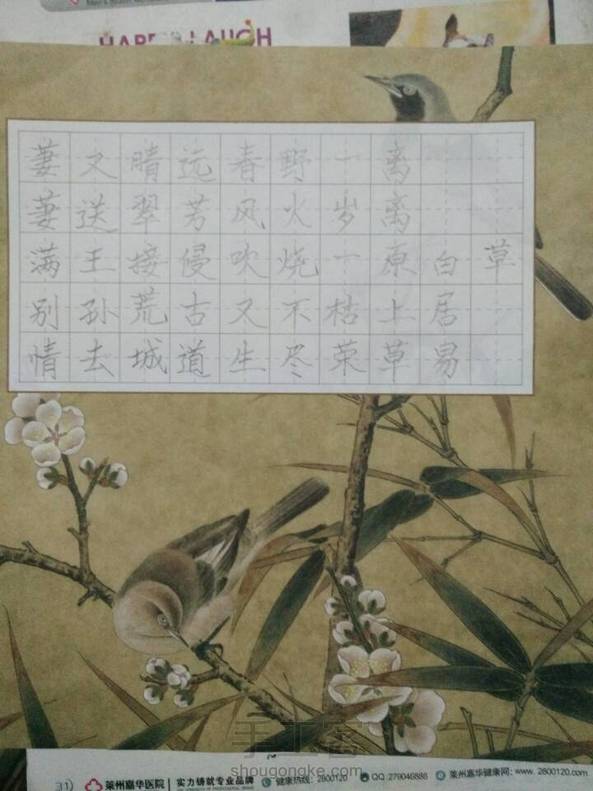 LAUGH
草
白居易
离离原上草
一岁一枯荣
野火烧不尽
春风吹又生
远芳侵古道
晴翠接荒城
又送王孙去
萋萋满别情
手工客
shougongke.com
31) 莱州嘉华医院 实力铸就专业品牌 健康热线：2800120 QQ:279046886 莱州嘉华健康网：www.2800120.com